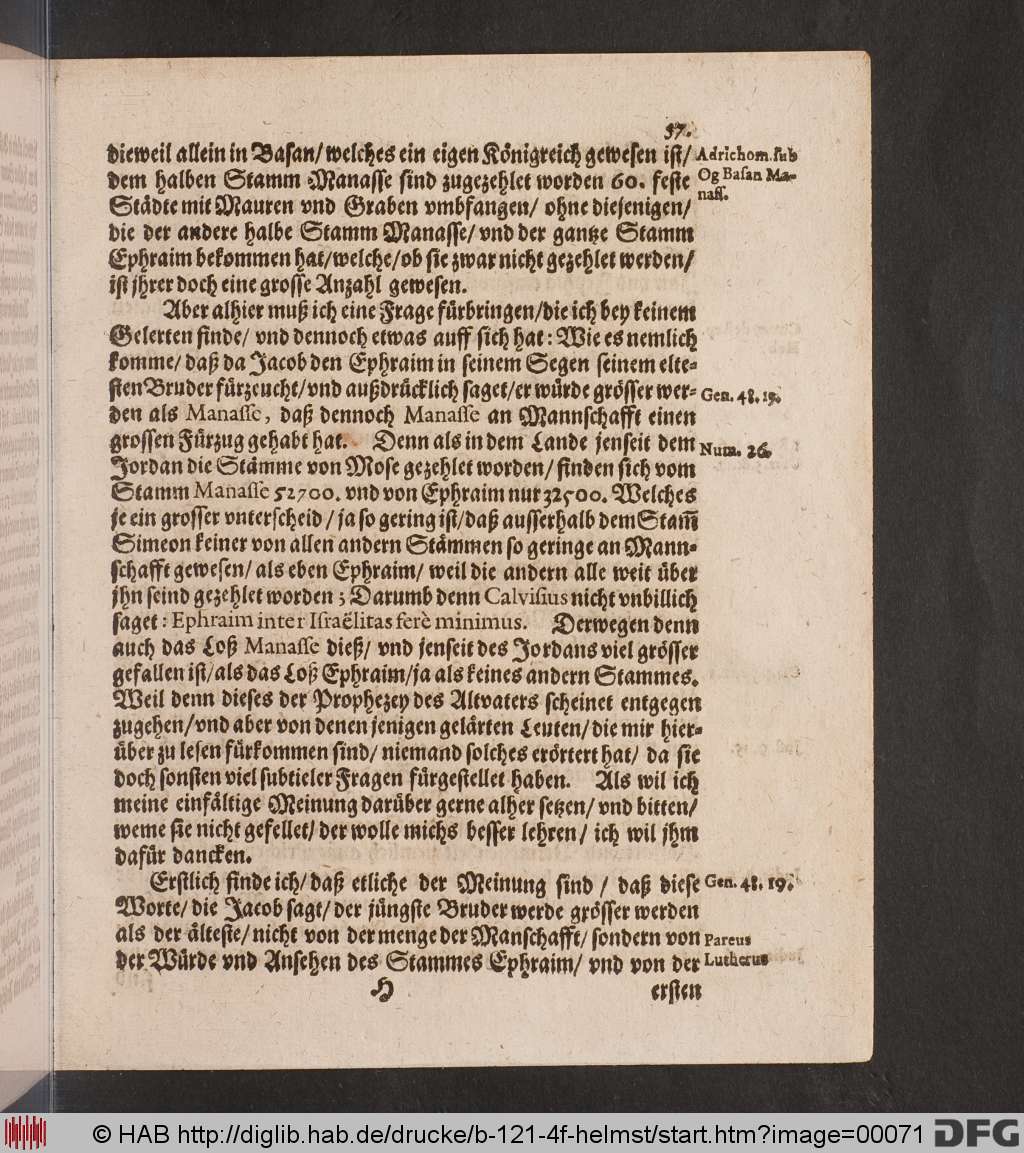 57.
dieweil allein in Basan/ welches ein eigen Königreich gewesen ist/
Adrichom. sub
dem halben Stamm Manasse sind zugezehlet worden 60. feste
Og Basan Ma-
nass.
Städte mit Mauren vnd Graben vmbfangen/ ohne diejenigen/
die der andere halbe Stamm Manasse/ vnd der gantze Stamm
Ephraim bekommen hat/ welche/ ob sie zwar nicht gezehlet werden/
ist jhrer doch eine grosse Anzahl gewesen.
Aber alhier muß ich eine Frage fürbringen/ die ich bey keinem
Gelerten finde/ vnd dennoch etwas auff sich hat: Wie es nemlich
komme/ daß da Jacob den Ephraim in seinem Segen seinem elte-
sten Bruder fürzeucht/ vnd außdrücklich saget/ er würde grösser wer-
Gen. 48. 19.
den als Manasse, daß dennoch Manasse an Mannschafft einen
grossen Fürzug gehabt hat. Denn als in dem Lande jenseit dem
Num. 26.
Jordan die Stämme von Mose gezehlet worden/ finden sich vom
Stamm Manasse 52700. vnd von Ephraim nur 32500. Welches
je ein grosser vnterscheid/ ja so gering ist/ daß ausserhalb dem Stam̄
Simeon keiner von allen andern Stämmen so geringe an Mann-
schafft gewesen/ als eben Ephraim/ weil die andern alle weit über
jhn seind gezehlet worden; Darumb denn Calvisius nicht vnbillich
saget: Ephraim inter Israëlitas ferè minimus. Derwegen denn
auch das Loß Manasse dieß/ vnd jenseit des Jordans viel grösser
gefallen ist/ als das Loß Ephraim/ ja als keines andern Stammes.
Weil denn dieses der Prophezey des Altvaters scheinet entgegen
zugehen/ vnd aber von denen jenigen gelärten Leuten/ die mir hier-
über zu lesen fürkommen sind/ niemand solches erörtert hat/ da sie
doch sonsten viel subtieler Fragen fürgestellet haben. Als wil ich
meine einfältige Meinung darüber gerne alher setzen/ vnd bitten/
weme sie nicht gefellet/ der wolle michs besser lehren/ ich wil jhm
dafür dancken.
Erstlich finde ich/ daß etliche der Meinung sind/ daß diese
Gen. 48. 19.
Worte/ die Jacob sagt/ der jüngste Bruder werde grösser werden
als der älteste/ nicht von der menge der Manschafft/ sondern von
Pareus
der Würde vnd Ansehen des Stammes Ephraim/ vnd von der
Lutherus
H
ersten
© HAB http://diglib.hab.de/drucke/b-121-4f-helmst/start.htm?image=00071
DFG